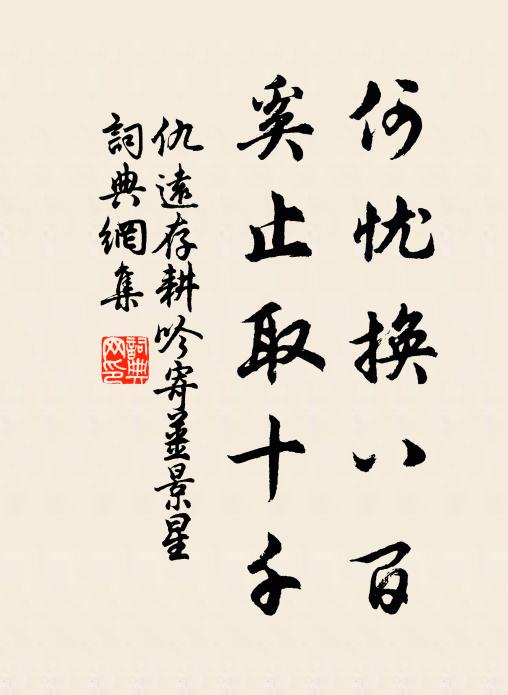 何忧换八百
奚止取十千
仇遠存耕吟寄薑景星
詞典網集
詞典網印